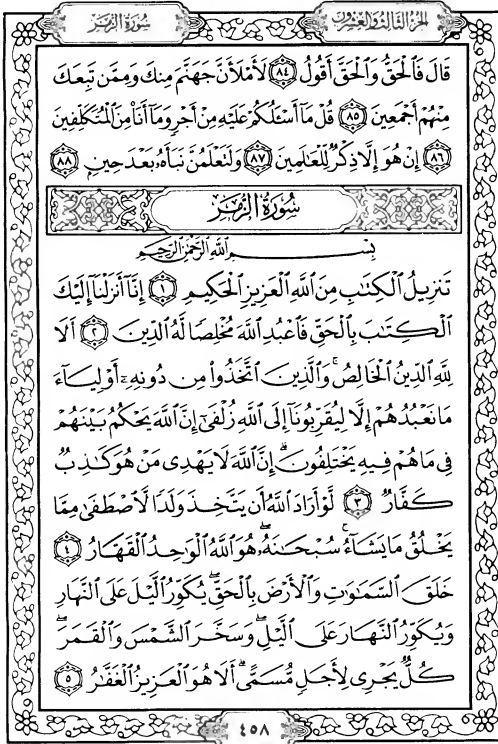 سُورَةُ الزُّمَر
الجُزْءُ الثَّالِثُ وَالعِشْرُون
قَالَ فَٱلْحَقُّ وَٱلْحَقَّ أَقُولُ ٨٤ لَأَمْلَأَنَّ جَهَنَّمَ مِنكَ وَمِمَّن تَبِعَكَ
مِنْهُمْ أَجْمَعِينَ ٨٥ قُلْ مَآ أَسْـَٔلُكُمْ عَلَيْهِ مِنْ أَجْرٍ وَمَآ أَنَا۠ مِنَ ٱلْمُتَكَلِّفِينَ
٨٦ إِنْ هُوَ إِلَّا ذِكْرٌ لِّلْعَٰلَمِينَ ٨٧ وَلَتَعْلَمُنَّ نَبَأَهُۥ بَعْدَ حِينٍۭ ٨٨
سُورَةُ الزُّمَر
بِسْمِ ٱللَّهِ ٱلرَّحْمَٰنِ ٱلرَّحِيمِ
تَنزِيلُ ٱلْكِتَٰبِ مِنَ ٱللَّهِ ٱلْعَزِيزِ ٱلْحَكِيمِ ١ إِنَّآ أَنزَلْنَآ إِلَيْكَ
ٱلْكِتَٰبَ بِٱلْحَقِّ فَٱعْبُدِ ٱللَّهَ مُخْلِصًا لَّهُ ٱلدِّينَ ٢ أَلَا
لِلَّهِ ٱلدِّينُ ٱلْخَالِصُ ۚ وَٱلَّذِينَ ٱتَّخَذُوا۟ مِن دُونِهِۦٓ أَوْلِيَآءَ
مَا نَعْبُدُهُمْ إِلَّا لِيُقَرِّبُونَآ إِلَى ٱللَّهِ زُلْفَىٰٓ إِنَّ ٱللَّهَ يَحْكُمُ بَيْنَهُمْ
فِى مَا هُمْ فِيهِ يَخْتَلِفُونَ ۗ إِنَّ ٱللَّهَ لَا يَهْدِى مَنْ هُوَ كَٰذِبٌ
كَفَّارٌ ٣ لَّوْ أَرَادَ ٱللَّهُ أَن يَتَّخِذَ وَلَدًا لَّٱصْطَفَىٰ مِمَّا
يَخْلُقُ مَا يَشَآءُ ۚ سُبْحَٰنَهُۥ ۖ هُوَ ٱللَّهُ ٱلْوَٰحِدُ ٱلْقَهَّارُ ٤
خَلَقَ ٱلسَّمَٰوَٰتِ وَٱلْأَرْضَ بِٱلْحَقِّ ۖ يُكَوِّرُ ٱلَّيْلَ عَلَى ٱلنَّهَارِ
وَيُكَوِّرُ ٱلنَّهَارَ عَلَى ٱلَّيْلِ ۖ وَسَخَّرَ ٱلشَّمْسَ وَٱلْقَمَرَ ۖ
كُلٌّ يَجْرِى لِأَجَلٍ مُّسَمًّى ۗ أَلَا هُوَ ٱلْعَزِيزُ ٱلْغَفَّٰرُ ٥
٤٥٨